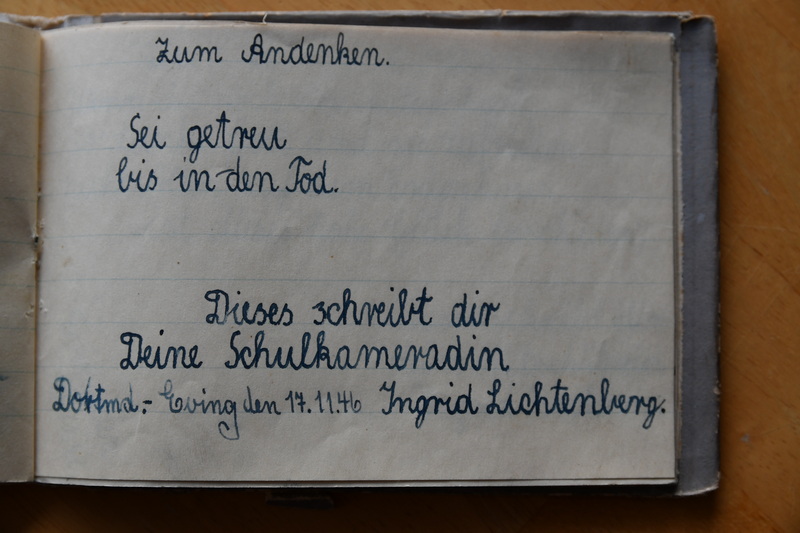 Zum Andenken.
Sei getreu
bis in den Tod.
Dieses schreibt dir
Deine Schulkameradin
Dortmd.- Eving den 17.11.46 Ingrid Lichtenberg.